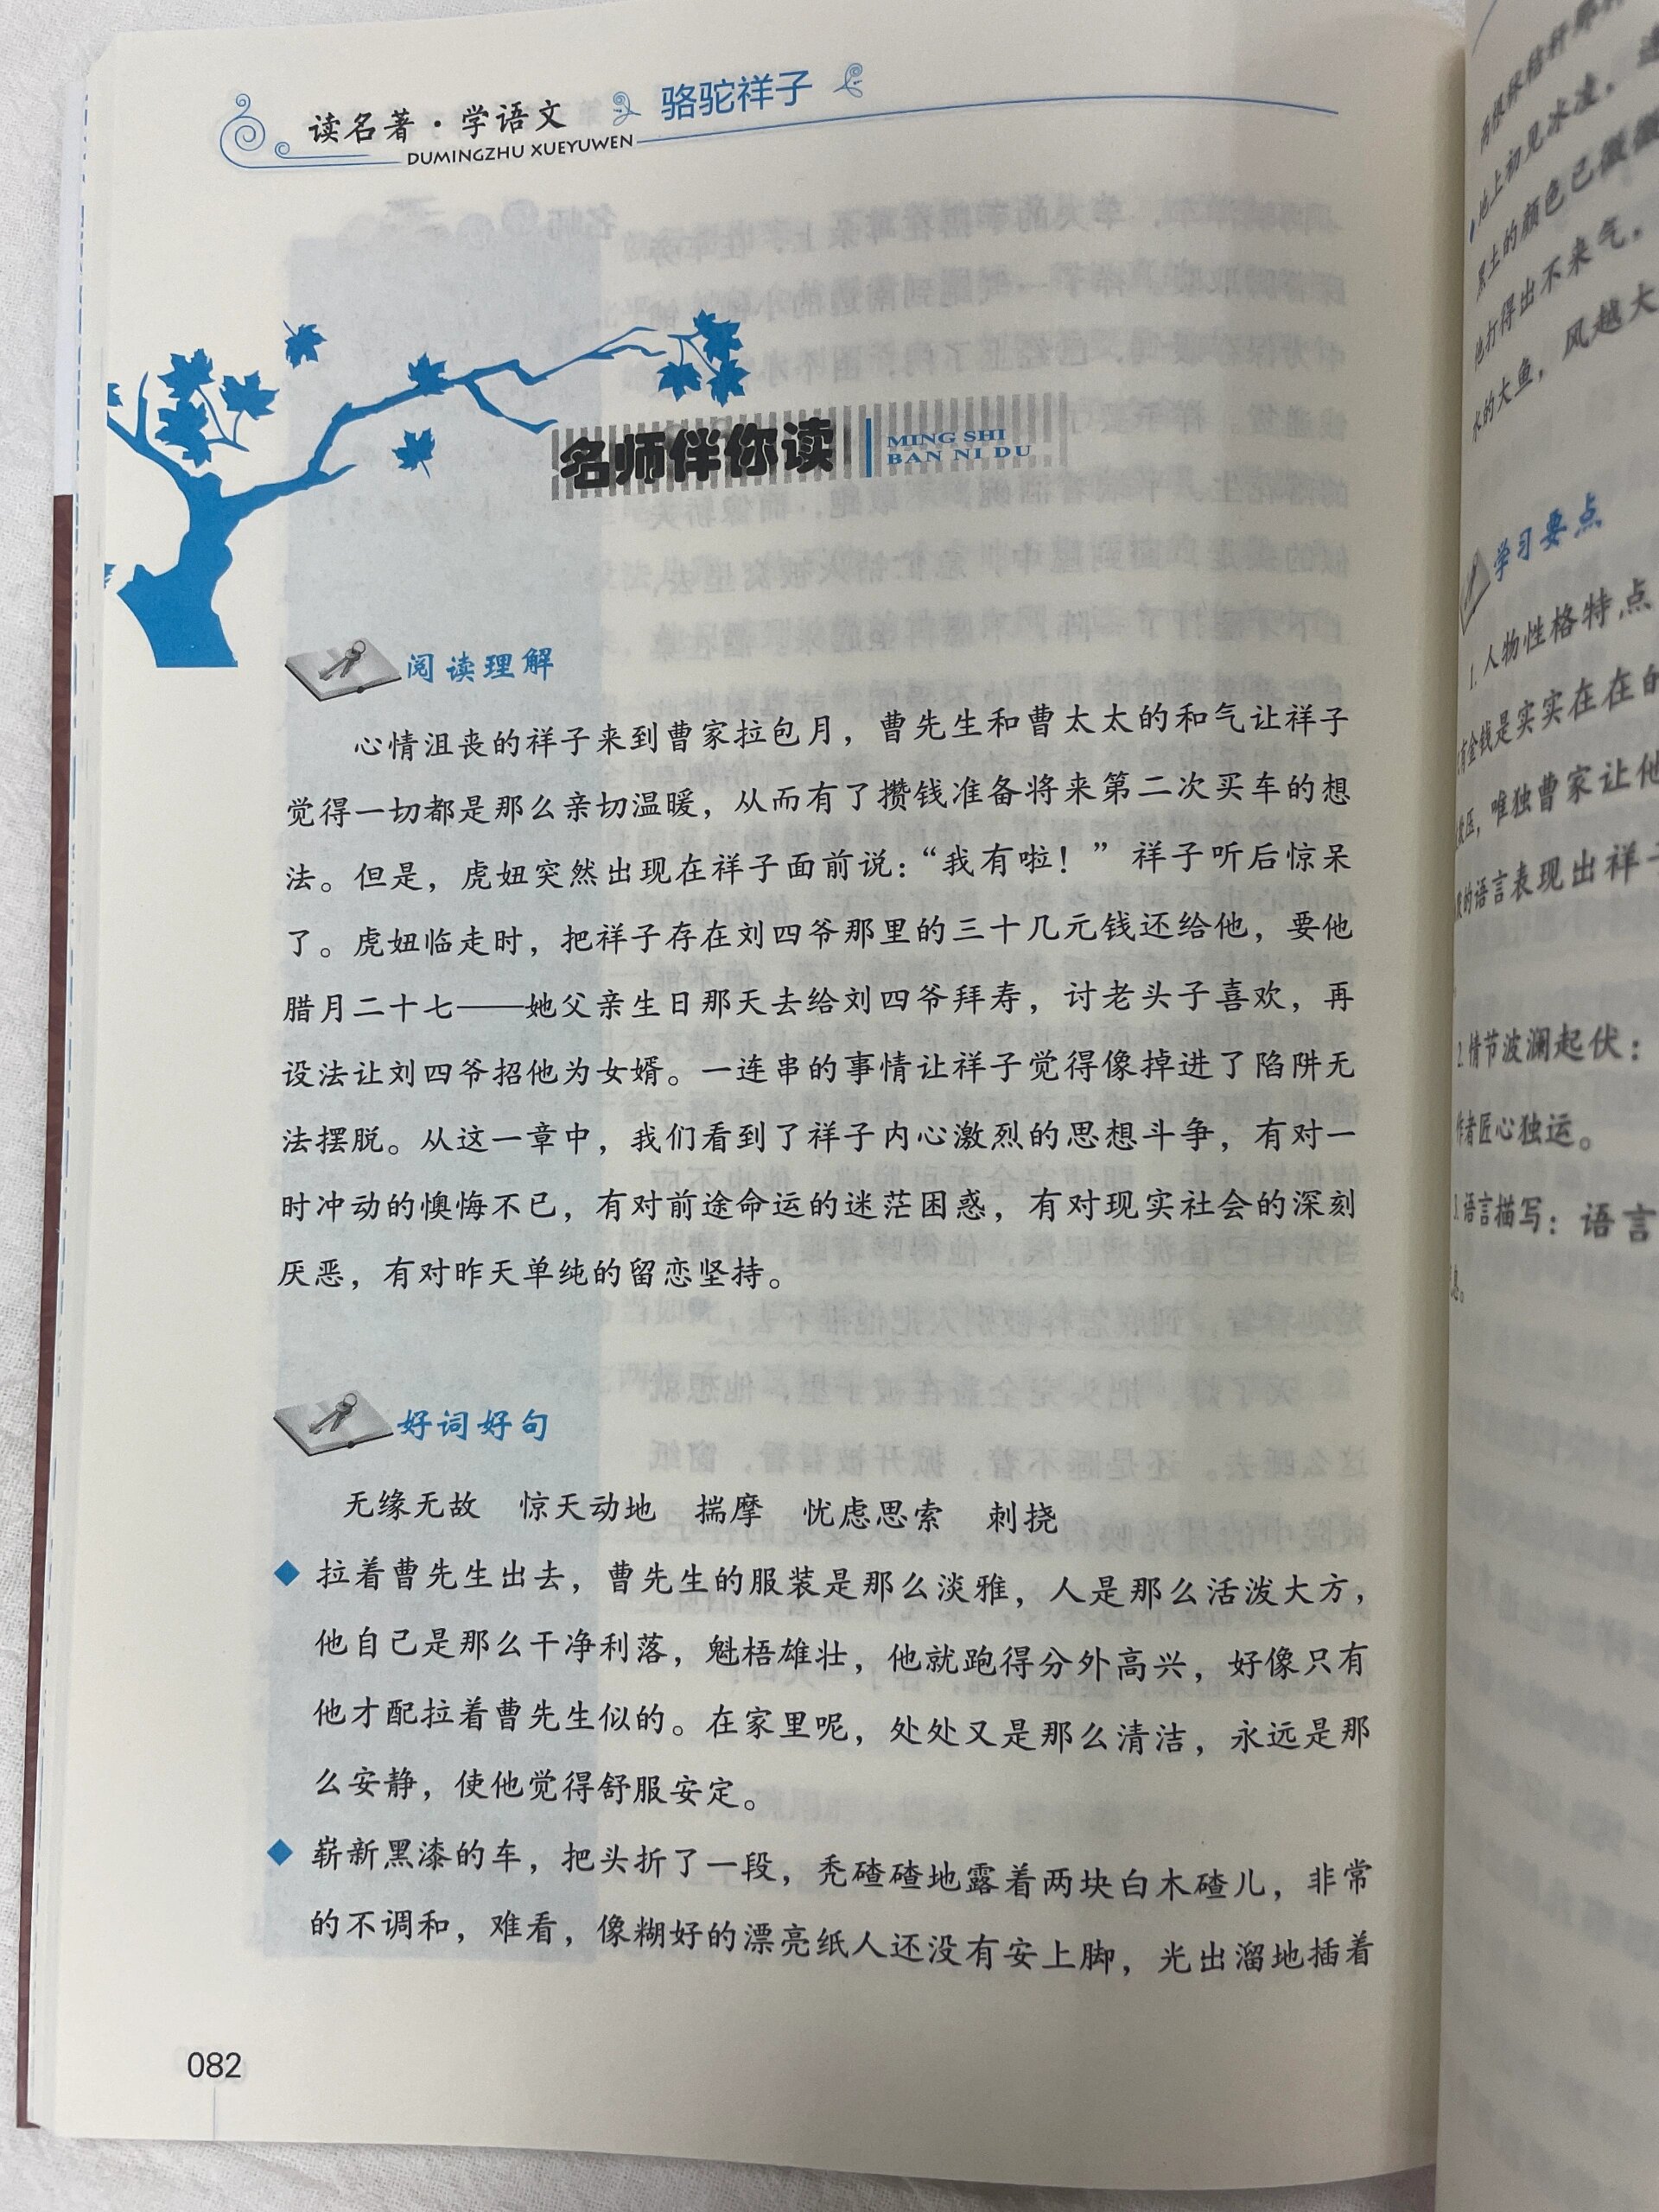 读名著·学语文
DUMINGZHU XUEYUWEN
骆驼祥子
名师伴你读
MING SHI
BAN NI DU
阅读理解
心情沮丧的祥子来到曹家拉包月，曹先生和曹太太的和气让祥子
觉得一切都是那么亲切温暖，从而有了攒钱准备将来第二次买车的想
法。但是，虎妞突然出现在祥子面前说：“我有啦！”祥子听后惊呆
了。虎妞临走时，把祥子存在刘四爷那里的三十几元钱还给他，要他
腊月二十七——她父亲生日那天去给刘四爷拜寿，讨老头子喜欢，再
设法让刘四爷招他为女婿。一连串的事情让祥子觉得像掉进了陷阱无
法摆脱。从这一章中，我们看到了祥子内心激烈的思想斗争，有对一
时冲动的懊悔不已，有对前途命运的迷茫困惑，有对现实社会的深刻
厌恶，有对昨天单纯的留恋坚持。
好词好句
无缘无故 惊天动地 揣摩 忧虑思索 刺挠
拉着曹先生出去，曹先生的服装是那么淡雅，人是那么活泼大方，
他自己是那么干净利落，魁梧雄壮，他就跑得分外高兴，好像只有
他才配拉着曹先生似的。在家里呢，处处又是那么清洁，永远是那
么安静，使他觉得舒服安定。
崭新黑漆的车，把头折了一段，秃碴碴地露着两块白木碴儿，非常
的不调和，难看，像糊好的漂亮纸人还没有安上脚，光出溜地插着
082
地上初见冰凌，
黑土的颜色已微微
他打得出不来气。
水的大鱼，风越大
学习要点
1. 人物性格特点
有金钱是实实在在的
，唯独曹家让他
的语言表现出祥子
2. 情节波澜起伏：
作者匠心独运。
3. 语言描写：语言